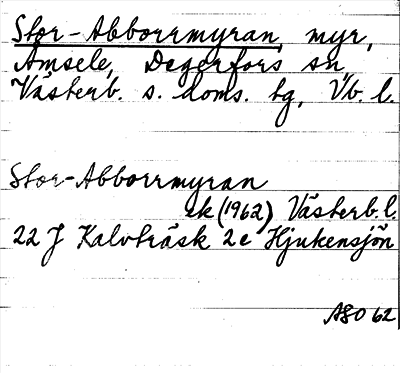 Stor-Abborrmyran, myr,
Åmsele, Degerfors sn,
Västerb. s. doms. tg, Vb. l.
Stor-Abborrmyran
ek (1962) Västerb. l.
22 J Kalvträsk 2e Hjukensjön
ASO 62